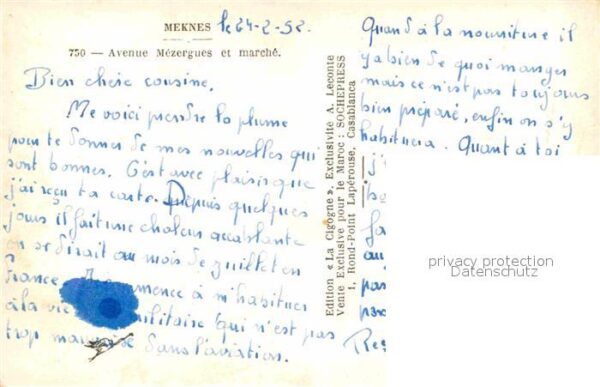 MEKNES le 24-2-52.
750 — Avenue Mézergues et marché.
Bien chère cousine.
Me voici prendre la plume
pour te donner de mes nouvelles qui
sont bonnes. C'est avec plaisir que
j'ai reçu ta carte. Depuis quelques
jours il fait une chaleur accablante
on se dirait au mois de juillet en
France. commence à m'habituer
à la vie militaire qui n'est pas
trop mauvaise dans l'aviation.
Edition « La Cigogne », Exclusivite A. Leconte
Vente Exclusive pour le Maroc : SOCHEPRESS
1, Rond-Point Lapérouse, Casablanca
Quand à la nourriture il
y a bien de quoi manger
mais ce n'est pas toujours
bien préparé, enfin on s'y
habituera. Quant à toi
au
privacy protection
Datenschutz